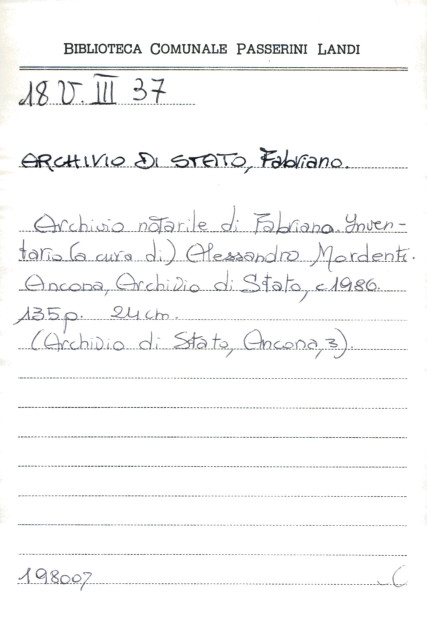 BIBLIOTECA COMUNALE PASSERINI LANDI
18 V. III 37
ARCHIVIO DI STATO, Fabriano.
Archivio notarile di Fabriano. Inven-
tario (a cura di) Alessandro Mordenti.
Ancona, Archivio di Stato, c1986.
135 p. 24 cm.
(Archivio di Stato, Ancona, 3).
198007
C